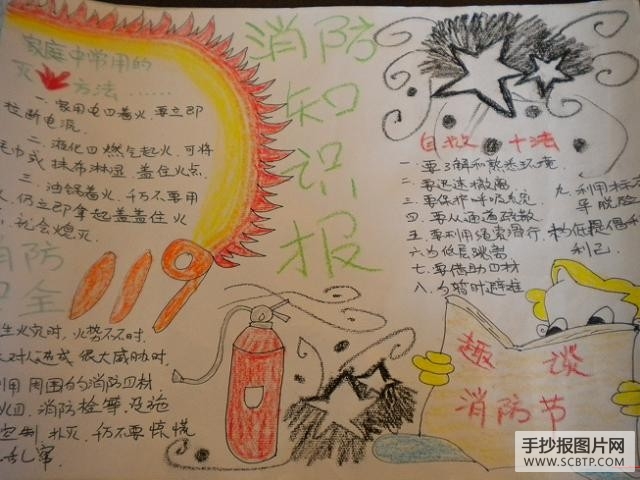 家庭中常用的
灭火方法……
一 家用电四着火,要立即
拉断电源
二 液化四燃气起火,可将
毛巾或抹布淋湿,盖住火点
三 油锅着火,千万不要用
水,仍立即拿起盖盖住火
就会熄灭
消防知识报
消防
安全
119
生火灾时,火势不大时,
对人造成很大威胁时
利用周围的消防四材
火四,消防栓等设施
控制,扑灭,千万不要惊慌
乱窜
自救 十法
一、要了解和熟悉环境
二、要迅速撤离
三、要保护呼吸系统
四、要从通道疏散
五、要利用绳索滑行
六、为低层跳离
七、要借助四材
八、为暂时避难
九、利用标志
导脱险
利己
趣谈
消防节
手抄报图片网
WWW.SCBTP.COM